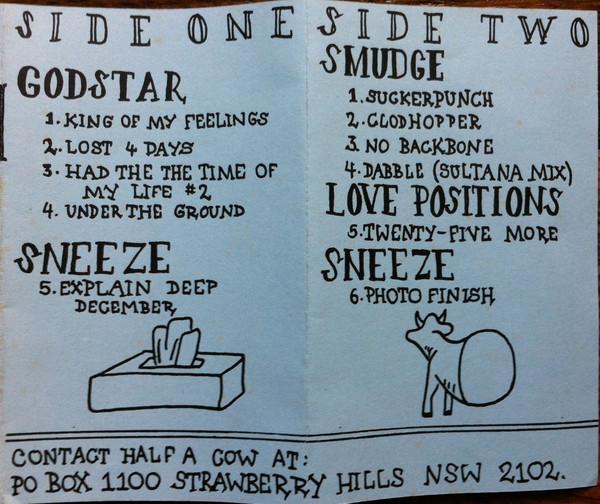 SIDE ONE
GODSTAR
1. KING OF MY FEELINGS
2. LOST 4 DAYS
3. HAD THE THE TIME OF
MY LIFE #2
4. UNDER THE GROUND
SNEEZE
5. EXPLAIN DEEP
DECEMBER
SIDE TWO
SMUDGE
1. SUCKERPUNCH
2. CLODHOPPER
3. NO BACKBONE
4. DABBLE (SULTANA MIX)
LOVE POSITIONS
5. TWENTY-FIVE MORE
SNEEZE
6. PHOTO FINISH
CONTACT HALF A COW AT:
PO BOX 1100 STRAWBERRY HILLS NSW 2102.